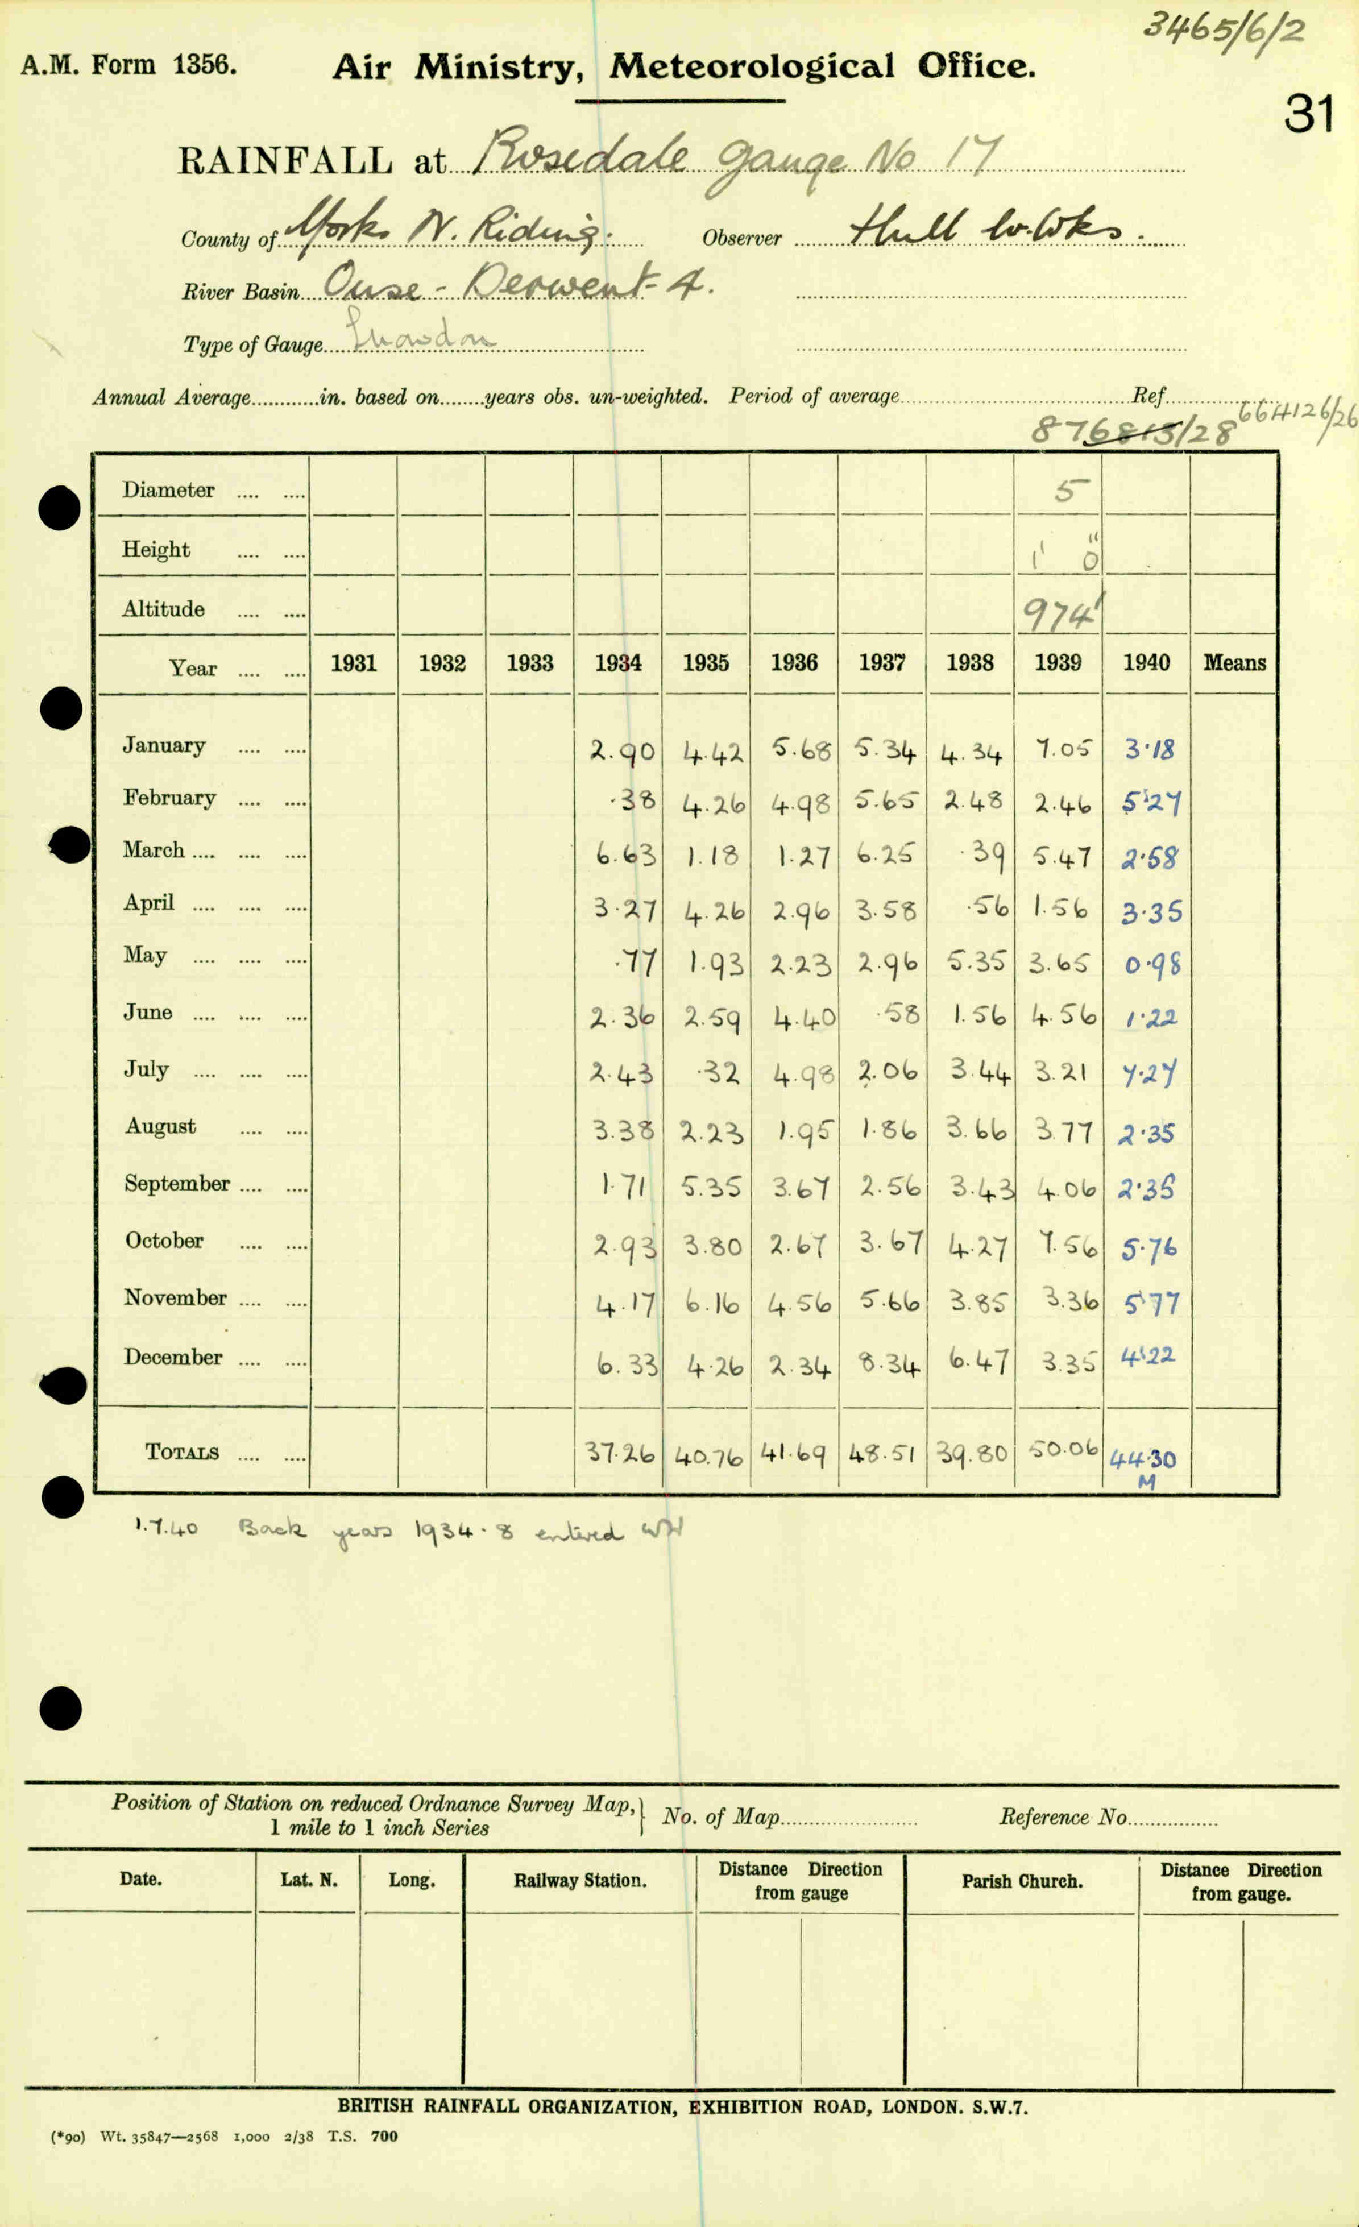 3465/6/2
A.M. Form 1356. Air Ministry, Meteorological Office.
31
RAINFALL at Rosedale Gauge No 17
County of Yorks N. Riding. Observer Hull W. Wks.
River Basin Ouse - Derwent - 4.
Type of Gauge Snowdon
Annual Average in. based on years obs. un-weighted. Period of average Ref.
876815/28 664126/26
Diameter 5
Height 1' 0"
Altitude 974'
Year 1931 1932 1933 1934 1935 1936 1937 1938 1939 1940 Means
January 2.90 4.42 5.68 5.34 4.34 7.05 3.18
February .38 4.26 4.98 5.65 2.48 2.46 5.27
March 6.63 1.18 1.27 6.25 .39 5.47 2.58
April 3.27 4.26 2.96 3.58 .56 1.56 3.35
May .77 1.93 2.23 2.96 5.35 3.65 0.98
June 2.36 2.59 4.40 .58 1.56 4.56 1.22
July 2.43 .32 4.98 2.06 3.44 3.21 7.27
August 3.38 2.23 1.95 1.86 3.66 3.77 2.35
September 1.71 5.35 3.67 2.56 3.43 4.06 2.35
October 2.93 3.80 2.67 3.67 4.27 7.56 5.76
November 4.17 6.16 4.56 5.66 3.85 3.36 5.77
December 6.33 4.26 2.34 8.34 6.47 3.35 4.22
TOTALS 37.26 40.76 41.69 48.51 39.80 50.06 44.30
M
1.7.40 Back years 1934-8 entered WH
Position of Station on reduced Ordnance Survey Map, 1 mile to 1 inch Series } No. of Map Reference No.
Date. Lat. N. Long. Railway Station. Distance Direction from gauge Parish Church. Distance Direction from gauge.
BRITISH RAINFALL ORGANIZATION, EXHIBITION ROAD, LONDON. S.W.7.
(*90) Wt. 35847—2568 1,000 2/38 T.S. 700